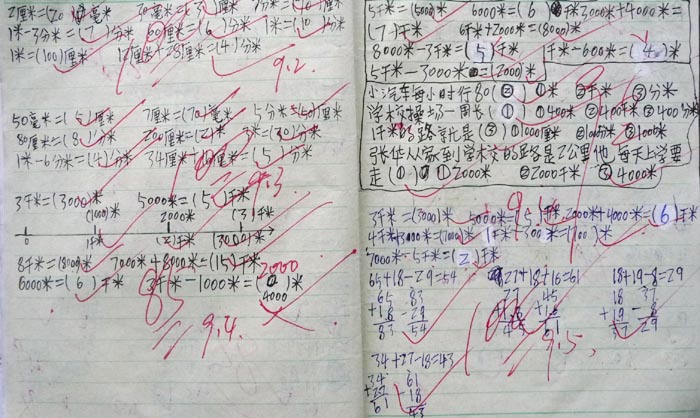 1米-3分米=(7)分米 60厘米=(6)分米 1米=(10)分米
1米=(100)厘米
9.2
50毫米=(5)厘米 7厘米=(70)毫米 5分米=(50)厘米
80厘米=(8)分米 200厘米=(2)米 3米=(30)分米
1米-6分米=(4)分米
9.3
3千米=(3000)米 5000米=(5)千米
(1000)米 2000米 (3)千米
0 1千米 (2)千米 (3000)米
8千米=(8000)米 7000米+8000米=(15)千米
6000米=(6)千米 3千米-1000米=( )米
2000
4000
85
9.4
5千米=(5000)米 6000米=(6)千米 3000米+4000米=
(7)千米 6千米+2000米=(8000)米
8000米-3千米=(5)千米
5千米-3000米=(2000)米
小汽车每小时行80(②) ①米 ②千米 ③分米
学校操场一周长(①) ①400米 ②400千米 ③400分米
①1000厘米 ②100米 ③1000米
张华从家到学校的路是2公里他每天上学要
走(①) ①2000米 ②2000千米 ③4000米
3千米=(3000)米 5000米=(5)千米 2000米+4000米=(6)千米
7000米-5千米=(2)千米
65+18-29=54 27+18+16=61 18+19-8=29
65 83
+18 -29
83 54
18 37
+19 -8
37 29
9.5
34+27-18=43
34 61
+27 -18
61 43